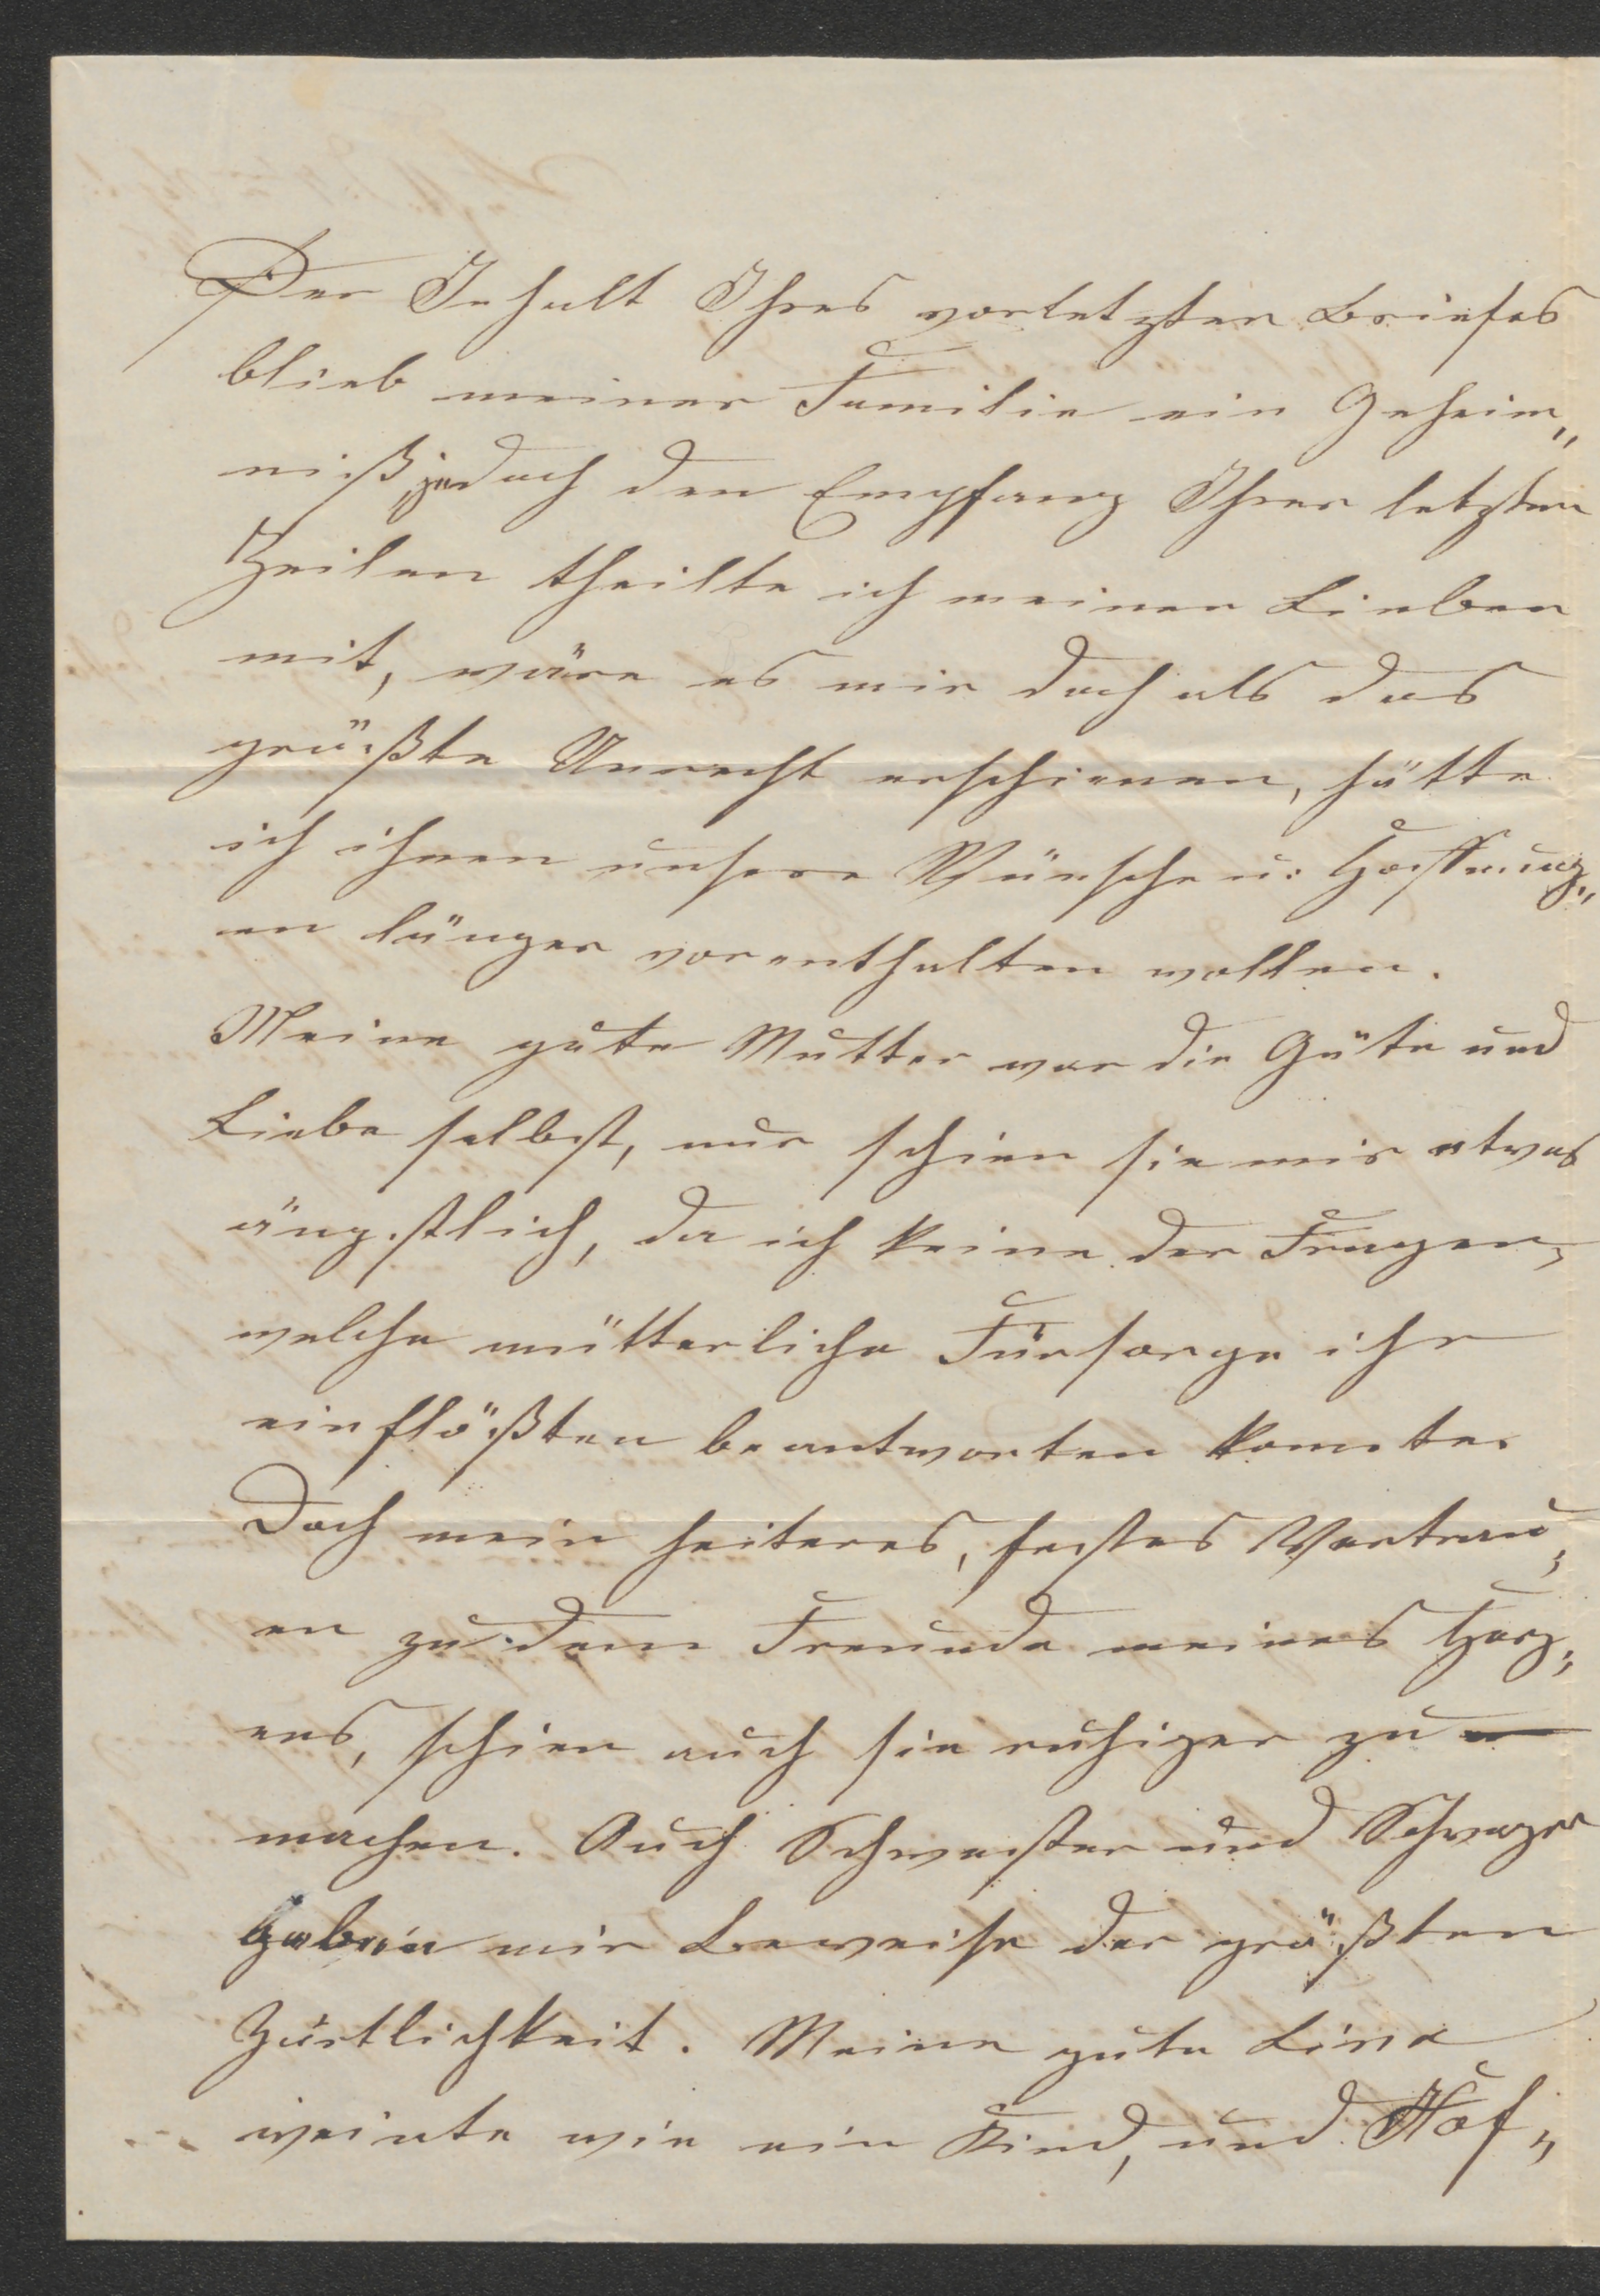 Der Inhalt Ihres vorletzten Briefes
blieb meiner Familie ein Geheim„
niß, jedoch den Empfang Ihrer letzten
Zeilen theilte ich meinen Lieben
mit, wäre es mir doch als das
größte Unrecht erschienen, hätte
ich ihnen unsere Wünsche u: Hoffnung„
en länger vorenthalten wollen.
Meine gute Mutter war die Güte und
Liebe selbst, nur schien sie mir etwas
ängstlich, da ich keine der Fragen,
welche mütterliche Fürsorge ihr
einflößten beantworten konnte.
Doch mein heiteres, festes Vertrau„
en zu dem Freunde meines Herz„
ens, schien auch sie ruhiger zu
machen. Auch Schwester und Schwager
gaben mir Beweise der größten
Zärtlichkeit. Meine gute Lina
weinte wie ein Kind, und Hof„